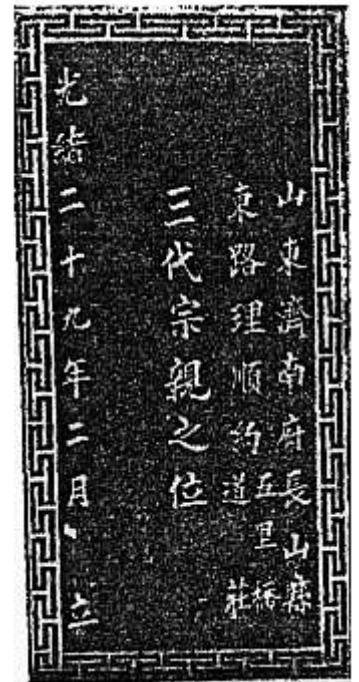 山東濟南府長山縣
東路理順約
五里橋
道莊
三代宗親之位
光緒二十九年二月 立